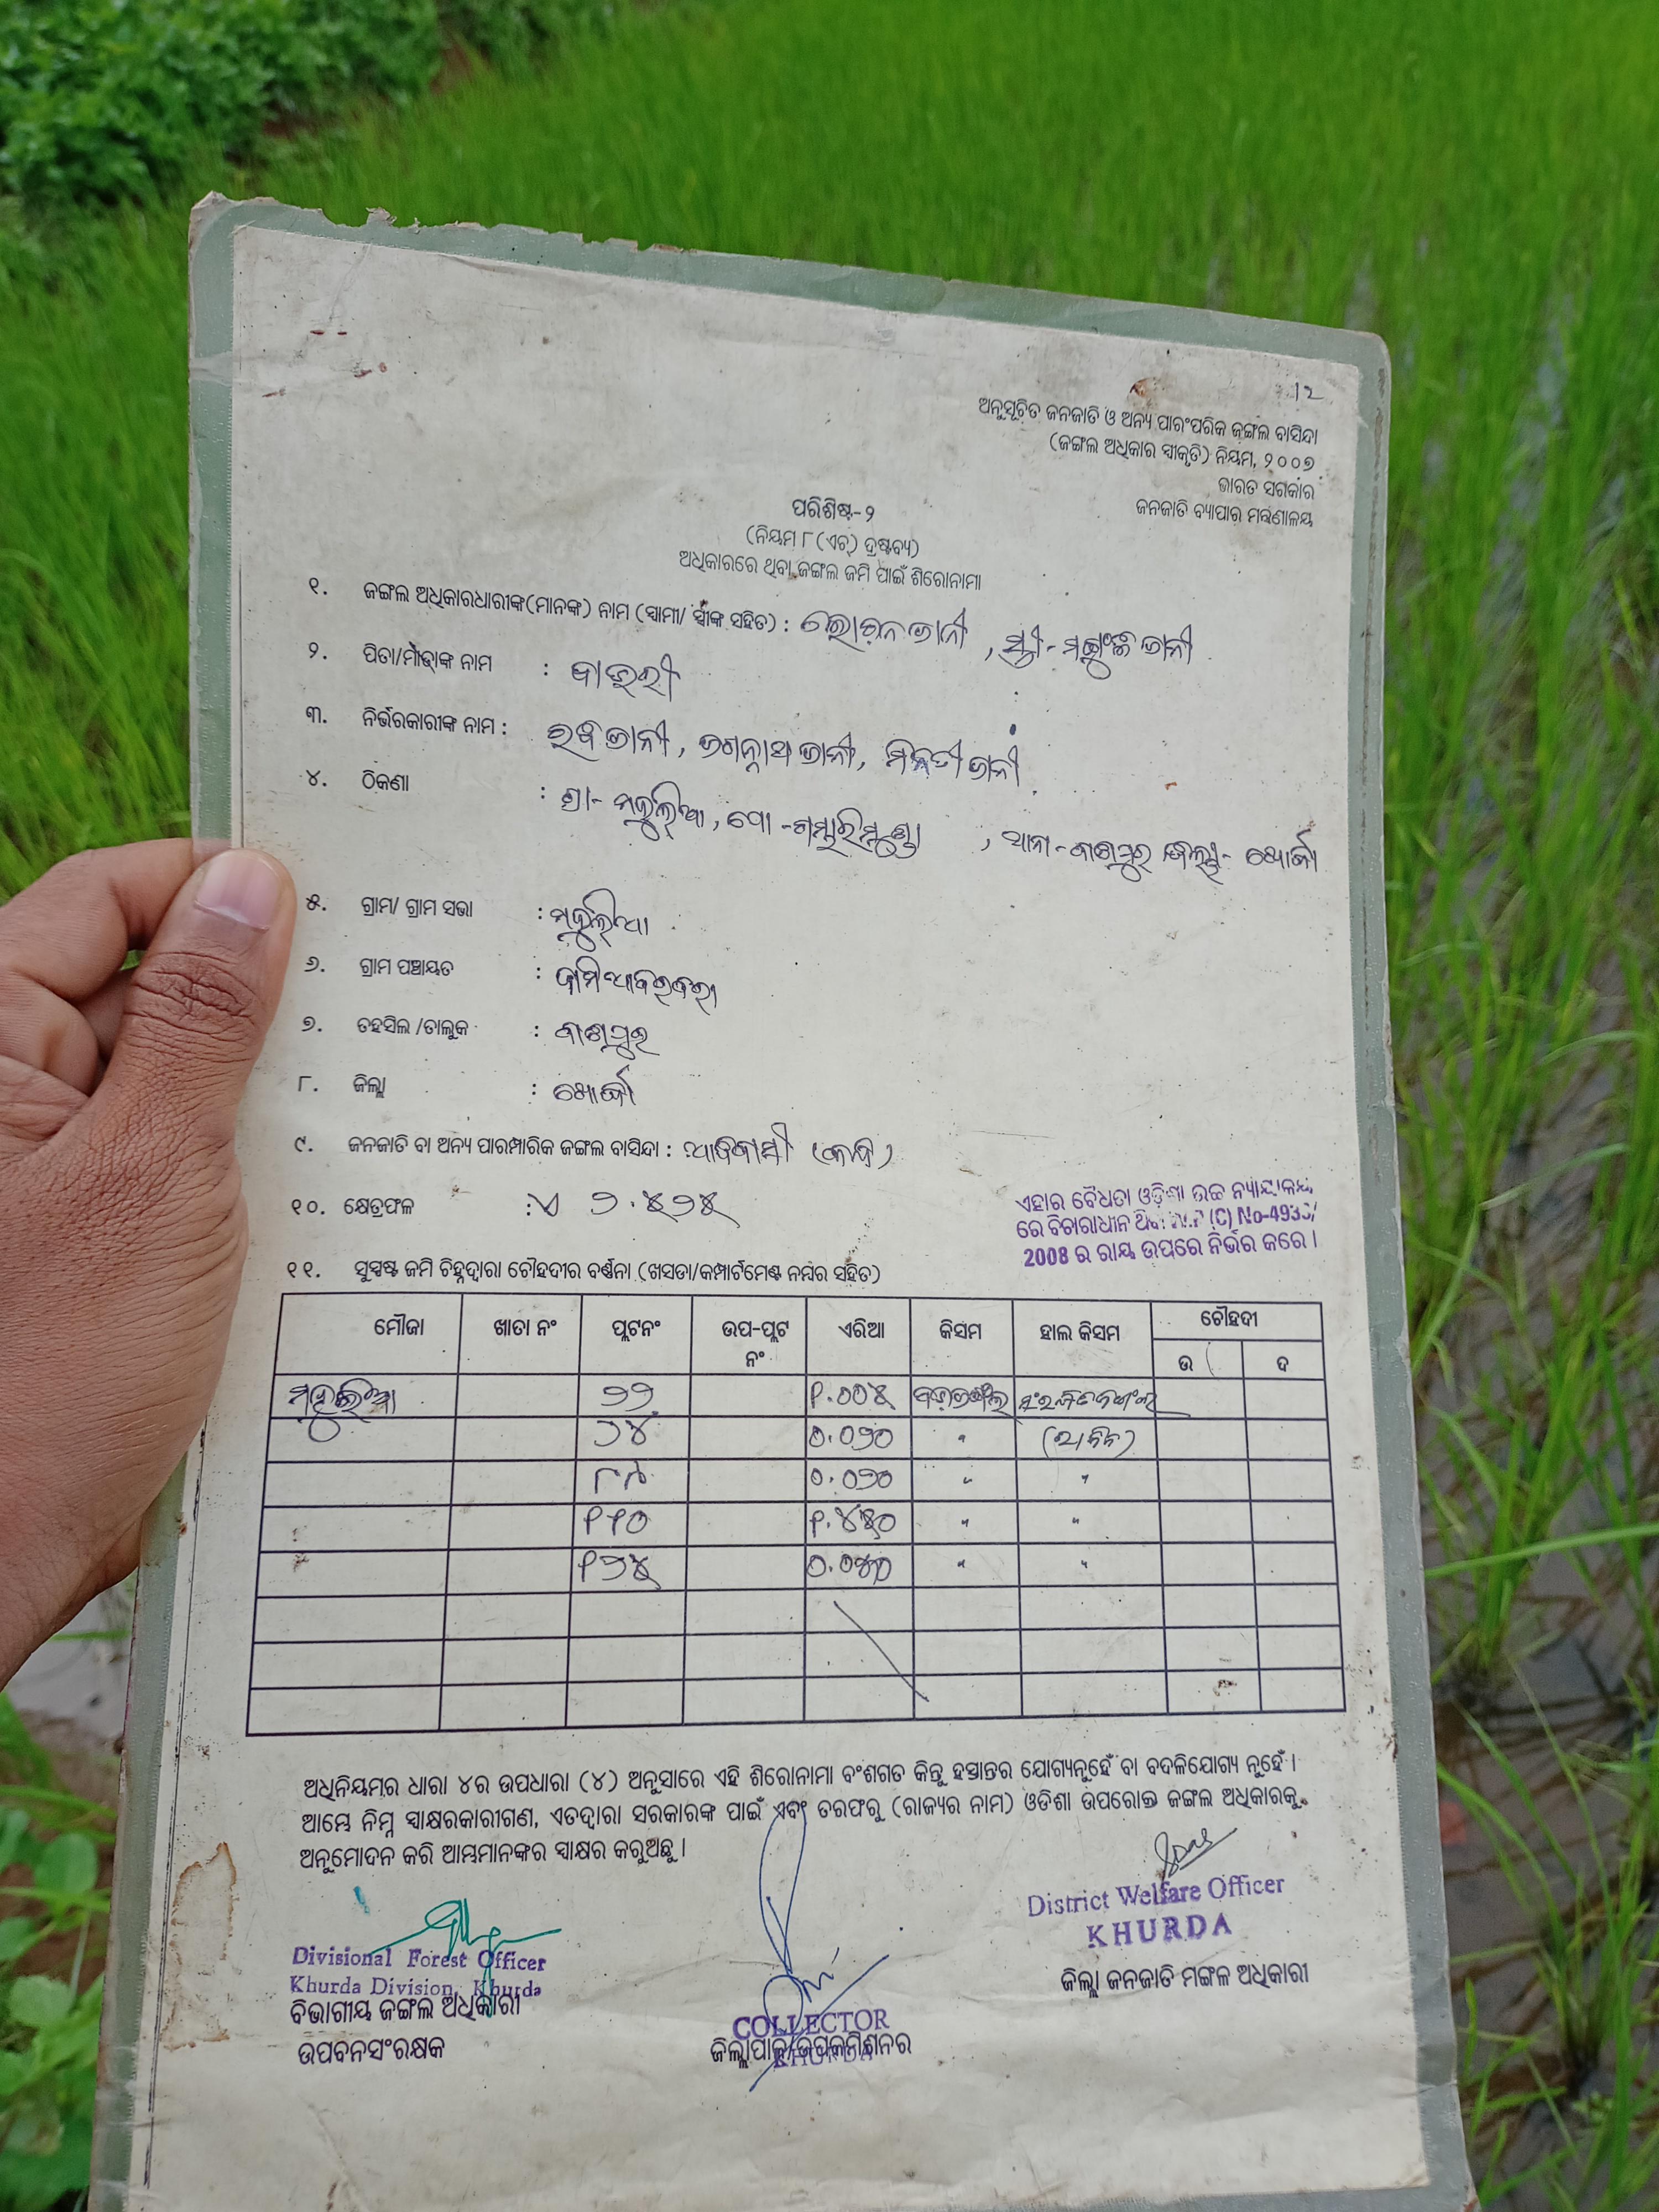 12
ଅନୁସୂଚିତ ଜନଜାତି ଓ ଅନ୍ୟ ପାରଂପରିକ ଜଙ୍ଗଲ ବାସିନ୍ଦା
(ଜଙ୍ଗଲ ଅଧିକାର ସ୍ଵୀକୃତି) ନିୟମ, ୨୦୦୭
ଭାରତ ସରକାର
ଜନଜାତି ବ୍ୟାପାର ମନ୍ତ୍ରଣାଳୟ
ପରିଶିଷ୍ଟ-୨
(ନିୟମ ୮(ଏଚ୍) ଦ୍ରଷ୍ଟବ୍ୟ)
ଅଧିକାରରେ ଥିବା ଜଙ୍ଗଲ ଜମି ପାଇଁ ଶିରୋନାମା
୧. ଜଙ୍ଗଲ ଅଧିକାରଧାରୀଙ୍କ(ମାନଙ୍କ) ନାମ (ସ୍ଵାମୀ/ ସ୍ତ୍ରୀଙ୍କ ସହିତ) : ଜାନୀ , ସ୍ତ୍ରୀ- ଜାନୀ
୨. ପିତା/ମାତାଙ୍କ ନାମ :
୩. ନିର୍ଭରକାରୀଙ୍କ ନାମ : ରବି ଜାନୀ, ଜଗନ୍ନାଥ ଜାନୀ, ମିନତୀ ଜାନୀ
୪. ଠିକଣା : ଗ୍ରା- , ପୋ -ଗମ୍ଭାରିମୁଣ୍ଡା , ଥାନା-ବାଣପୁର ଜିଲ୍ଲା- ଖୋର୍ଦ୍ଧା
୫. ଗ୍ରାମ/ ଗ୍ରାମ ସଭା :
୬. ଗ୍ରାମ ପଞ୍ଚାୟତ :
୭. ତହସିଲ /ତାଲୁକ : ବାଣପୁର
୮. ଜିଲ୍ଲା : ଖୋର୍ଦ୍ଧା
୯. ଜନଜାତି ବା ଅନ୍ୟ ପାରମ୍ପାରିକ ଜଙ୍ଗଲ ବାସିନ୍ଦା : ଆଦିବାସୀ
୧୦. କ୍ଷେତ୍ରଫଳ : ଏ ୨.୫୨୫
ଏହାର ବୈଧତା ଓଡ଼ିଶା ଉଚ୍ଚ ନ୍ୟାୟାଳୟ
ରେ ବିଚାରାଧୀନ ଥିବା W.P (C) No-4933/
2008 ର ରାୟ ଉପରେ ନିର୍ଭର କରେ ।
୧୧. ସୁସ୍ପଷ୍ଟ ଜମି ଚିହ୍ନଦ୍ଵାରା ଚୌହଦୀର ବର୍ଣ୍ଣନା (ଖସଡା/କମ୍ପାର୍ଟମେଣ୍ଟ ନମ୍ବର ସହିତ)
ମୌଜା ଖାତା ନଂ ପ୍ଲଟନଂ ଉପ-ପ୍ଲଟ ନଂ ଏରିଆ କିସମ ହାଲ କିସମ ଚୌହଦୀ
ଉ ଦ
୨୨ ୧.୦୦୫
୨୪ ୦.୦୨୦ "
୮୯ ୦.୦୨୦ " "
୧୧୦ ୧.୪୪୦ " "
୧୨୫ ୦.୦୪୦ " "
ଅଧିନିୟମର ଧାରା ୪ର ଉପଧାରା (୪) ଅନୁସାରେ ଏହି ଶିରୋନାମା ବଂଶଗତ କିନ୍ତୁ ହସ୍ତାନ୍ତର ଯୋଗ୍ୟନୁହେଁ ବା ବଦଳିଯୋଗ୍ୟ ନୁହେଁ ।
ଆମ୍ଭେ ନିମ୍ନ ସ୍ଵାକ୍ଷରକାରୀଗଣ, ଏତଦ୍ଵାରା ସରକାରଙ୍କ ପାଇଁ ଏବଂ ତରଫରୁ (ରାଜ୍ୟର ନାମ) ଓଡିଶା ଉପରୋକ୍ତ ଜଙ୍ଗଲ ଅଧିକାରକୁ
ଅନୁମୋଦନ କରି ଆମ୍ଭମାନଙ୍କର ସ୍ଵାକ୍ଷର କରୁଅଛୁ ।
District Welfare Officer
KHURDA
ଜିଲ୍ଲା ଜନଜାତି ମଙ୍ଗଳ ଅଧିକାରୀ
Divisional Forest Officer
Khurda Division, Khurda
ବିଭାଗୀୟ ଜଙ୍ଗଲ ଅଧିକାରୀ
ଉପବନସଂରକ୍ଷକ
COLLECTOR
KHURDA
ଜିଲ୍ଲାପାଳ/ଉପକମିଶନର